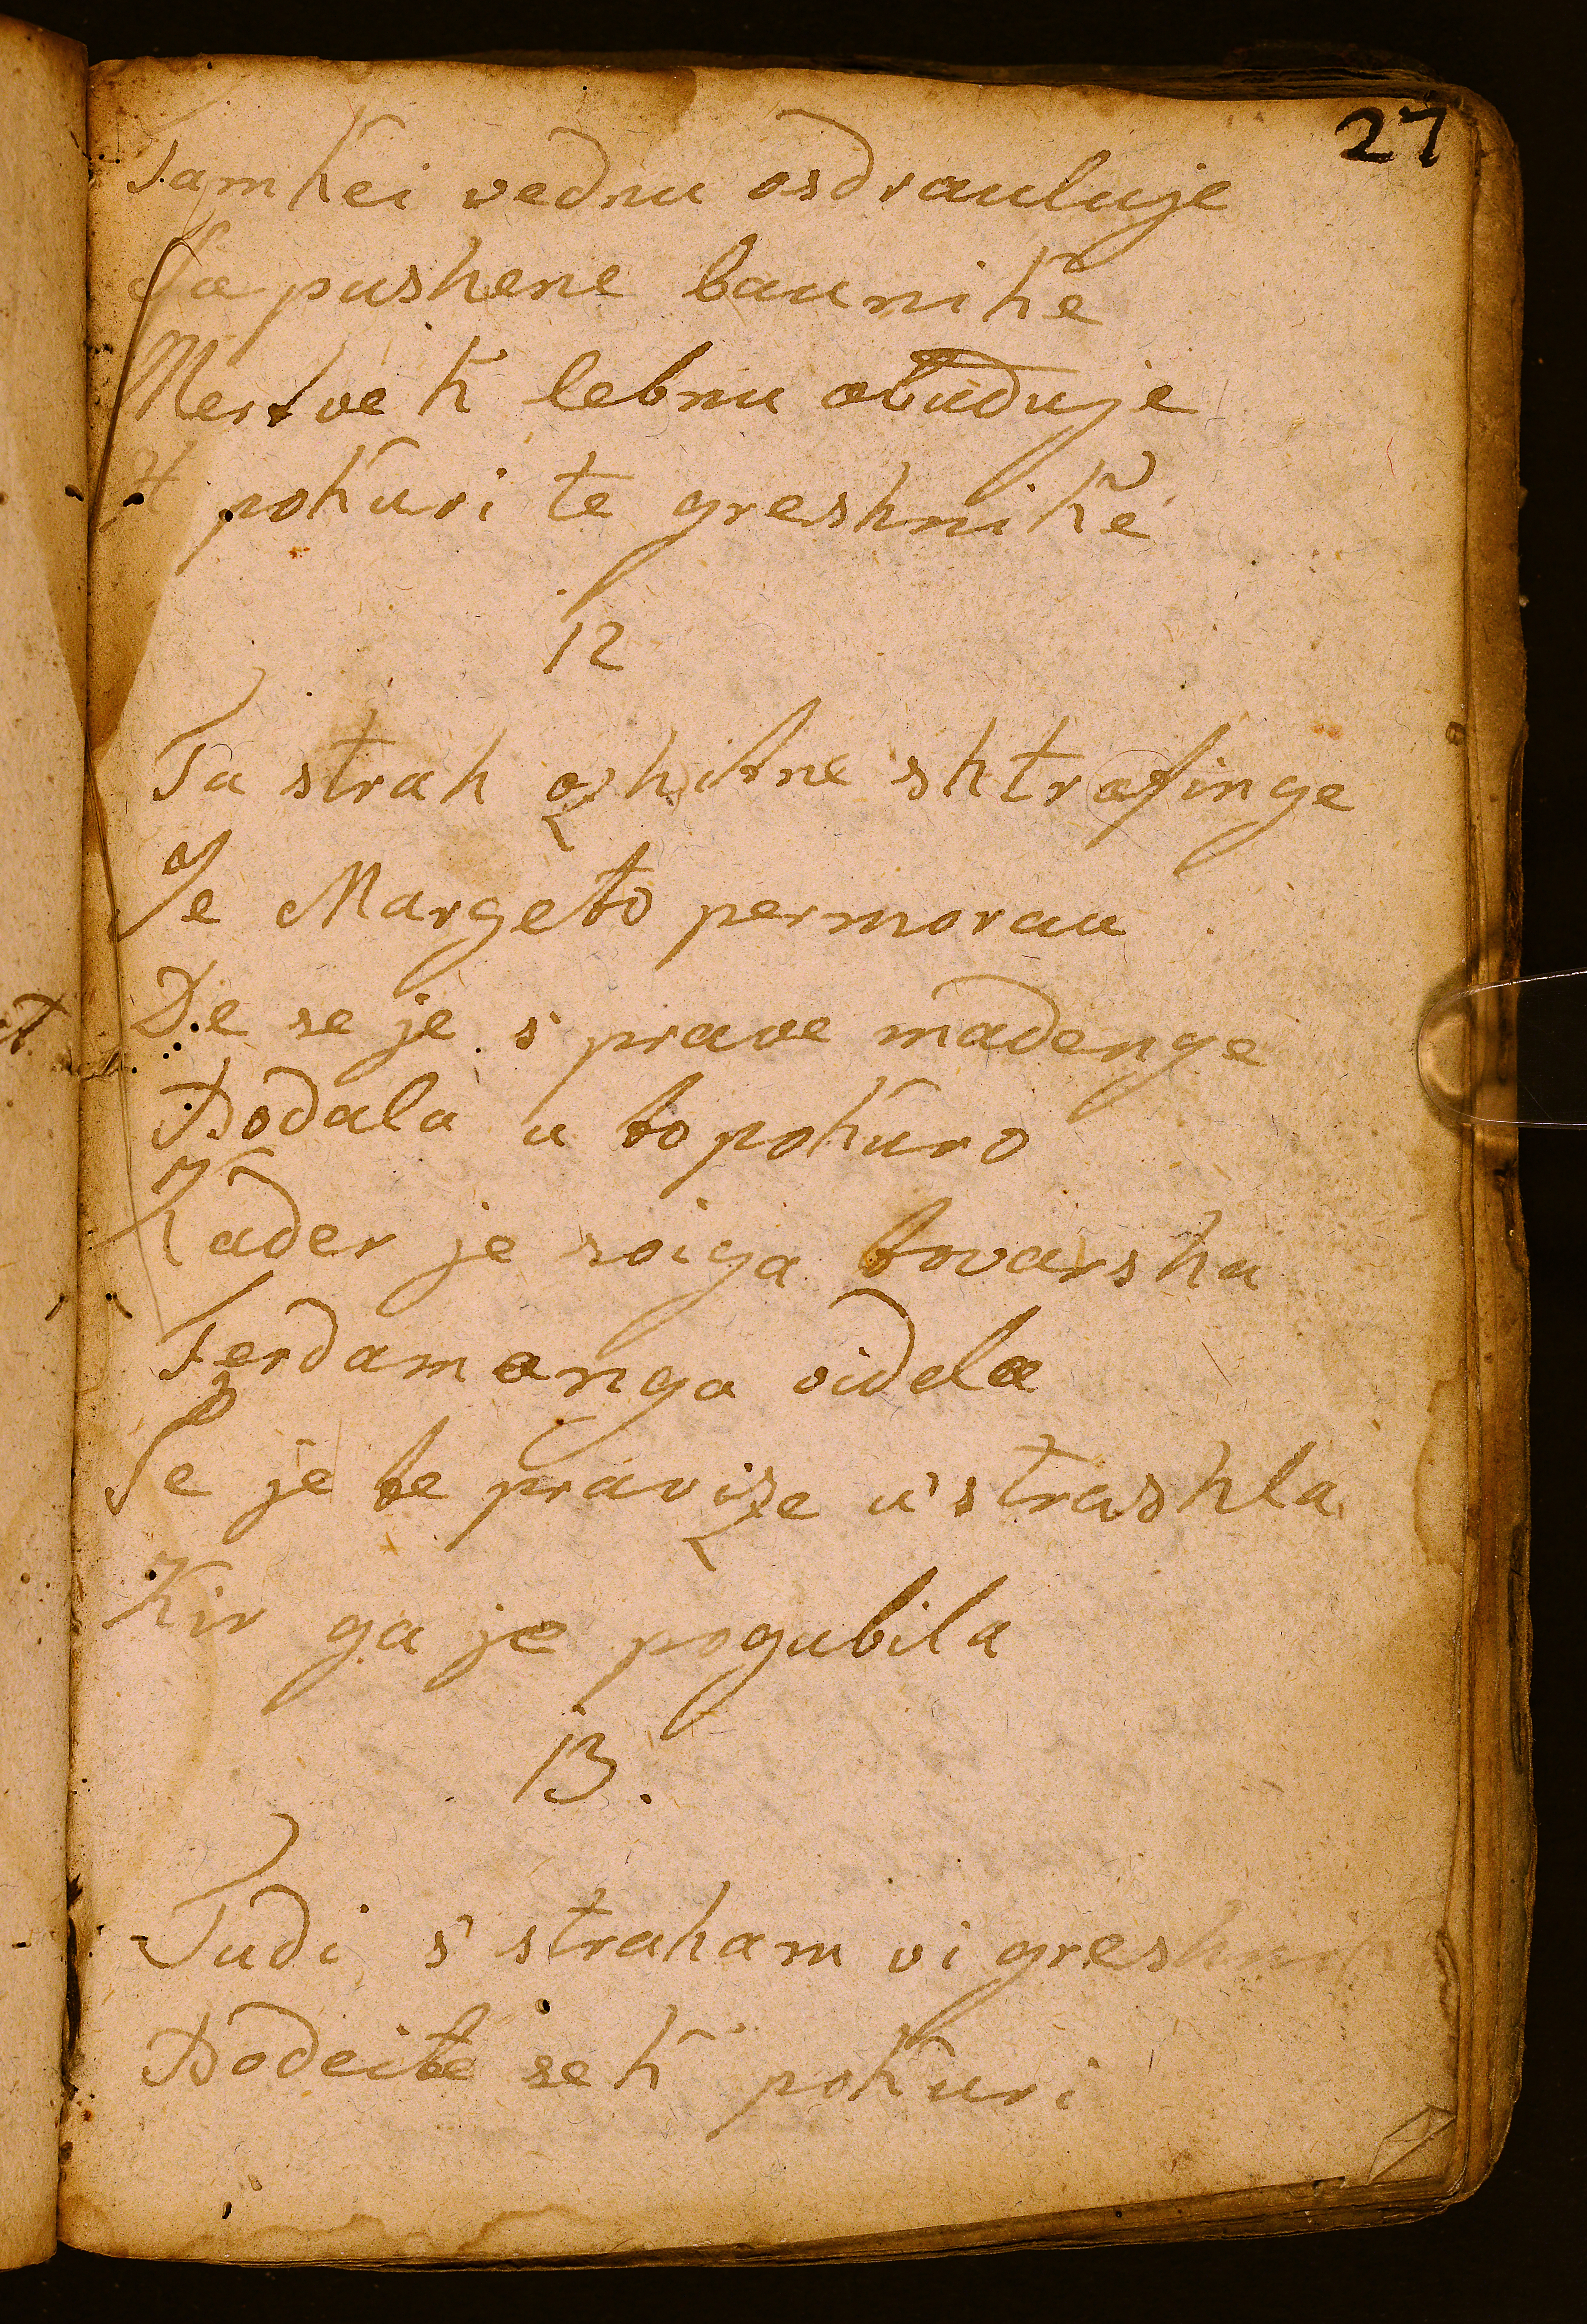 27
Tam kei vednu osdrauluje
Sapushene baunike
Mertve k lebnu obuduje
H pokuri te greshnike
12
Ta strah ozhitne shtrafinge
Je Margeto permorau
De se je s prave madenge
Podala u to pokuro
Kader je soiga tovarsha
Ferdamanga videla
Se je te pravize u'strashla
Kir ga je pogubila
13.
Tudi s' straham vi greshniki
Podeite se k' pokuri